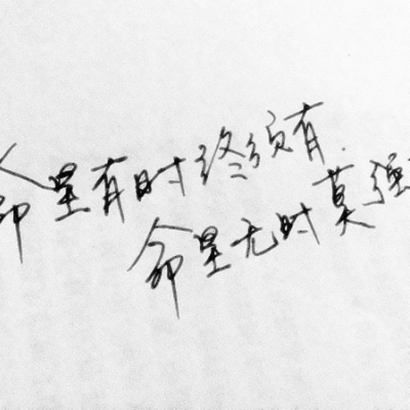 命里有时终须有.
命里无时莫强